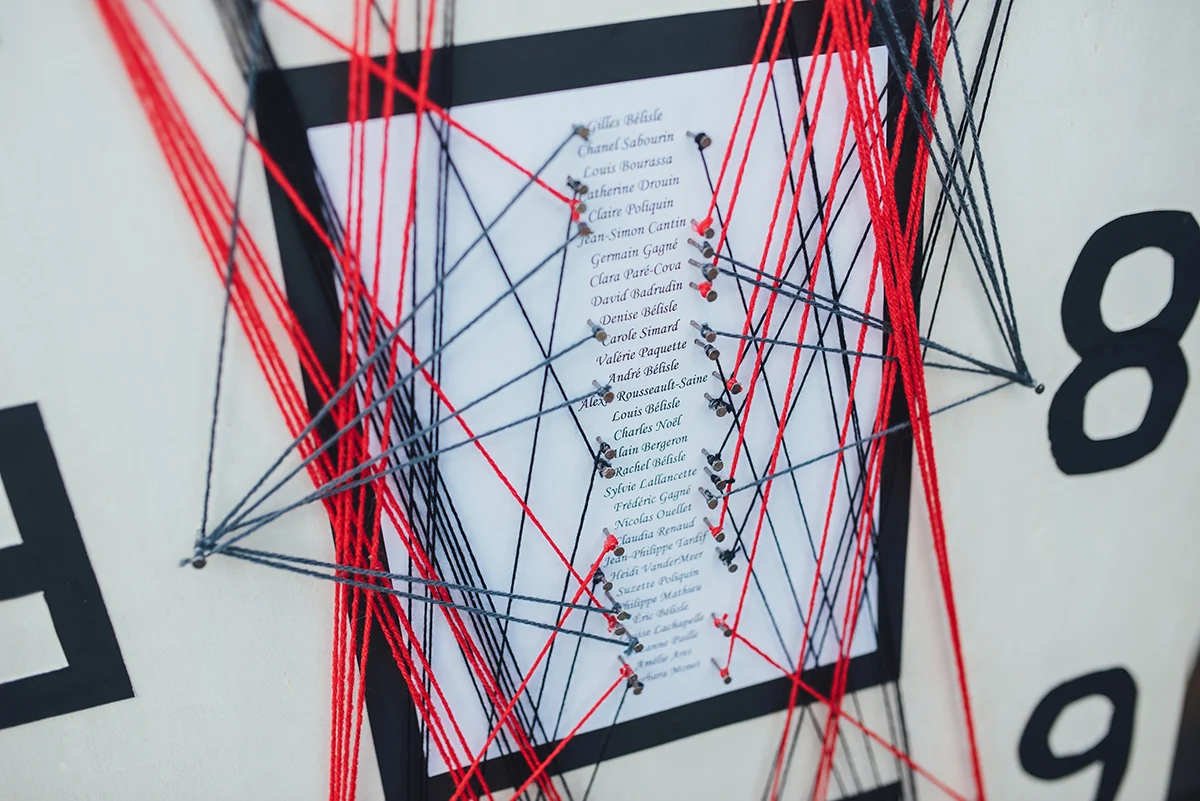 Gilles Bélisle
Chanel Sabourin
Louis Bourassa
atherine Drouin
Claire Poliquin
Jean-Simon Cantin
Germain Gagné
Clara Paré-Cova
David Badrudin
Denise Bélisle
Carole Simard
Valérie Paquette
André Bélisle
Alex Rousseault-Saine
Louis Bélisle
Charles Noël
Alain Bergeron
Rachel Bélisle
Sylvie Lallancette
Frédéric Gagné
Nicolas Ouellet
Claudia Renaud
Jean-Philippe Tardif
Heidi VanderMeer
Suzette Poliquin
Philippe Mathieu
Éric Bélisle
Lachapelle
8
9